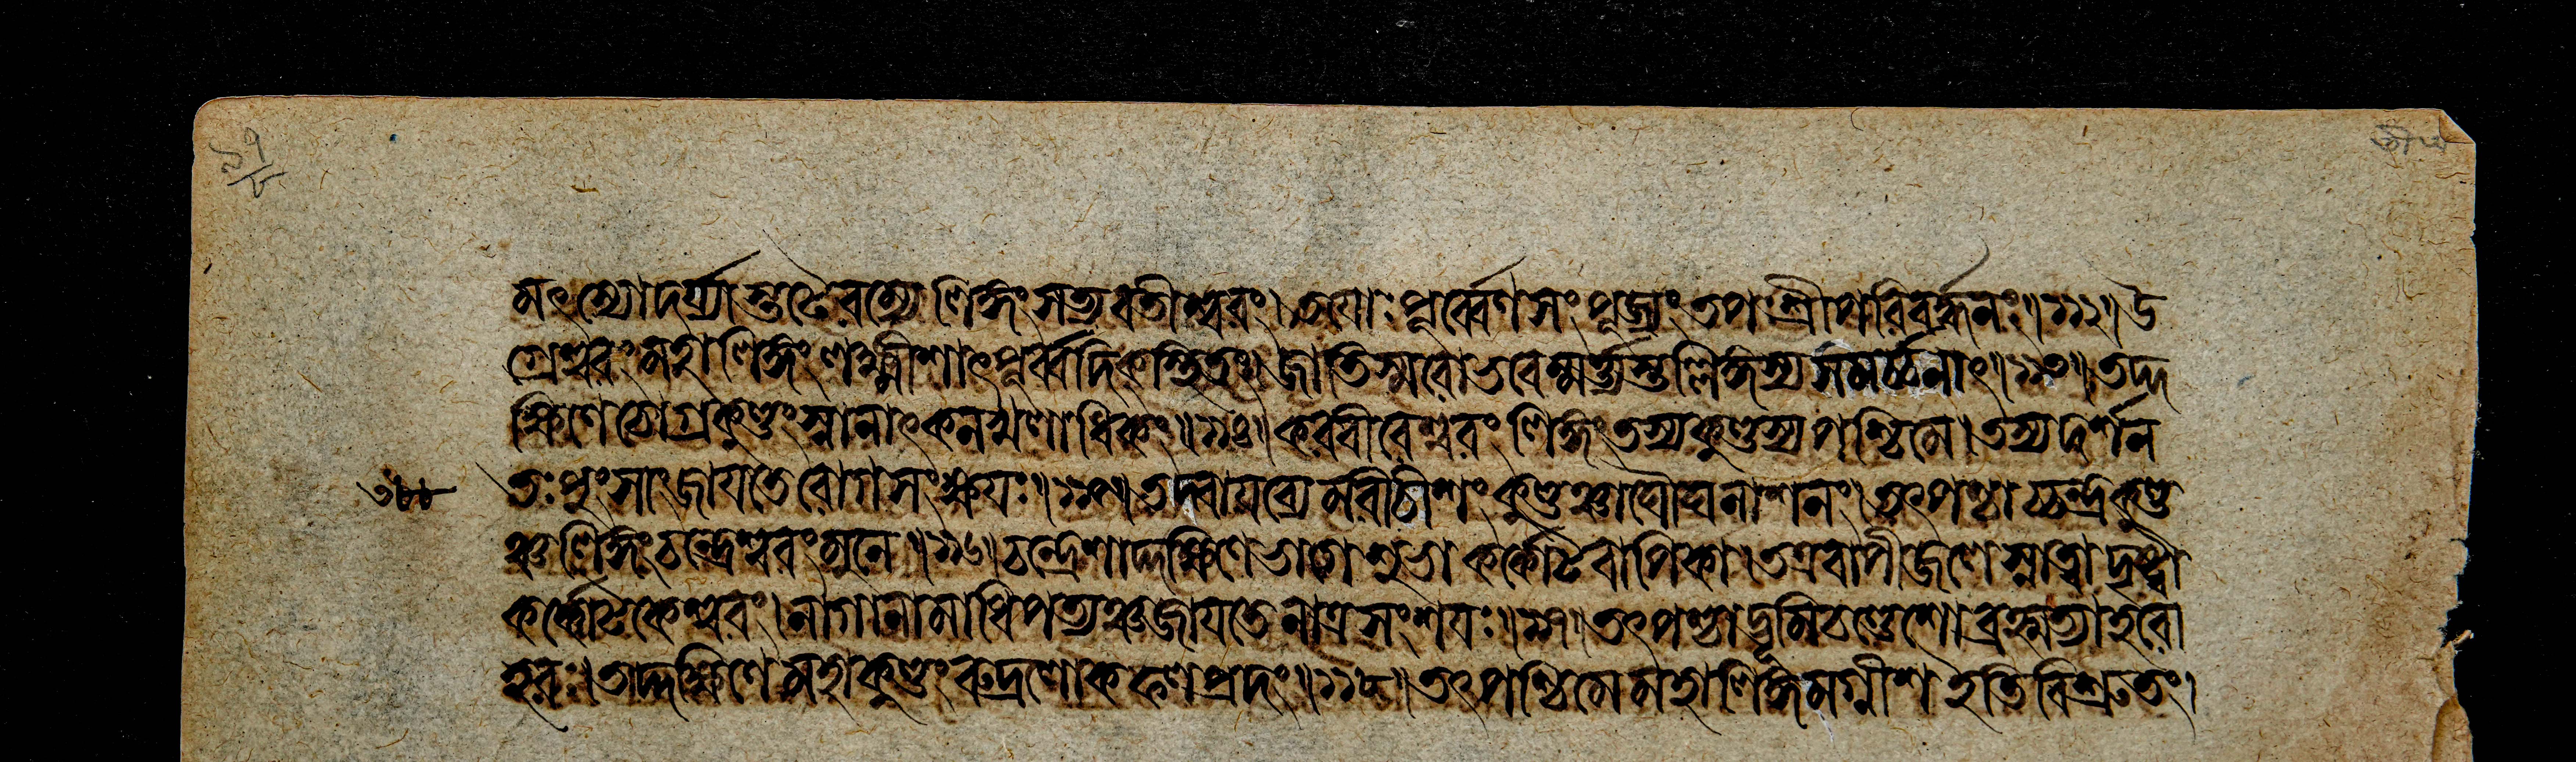 মৎস্যোদর্য্যাস্তটে রম্যে লিঙ্গং সত্যবতীশ্বরং। তয়োঃ পূর্ব্বেণ সংপূজ্যং তপঃশ্রীপরিবর্দ্ধনং॥১১২॥ উ
গ্রেশ্বরং মহালিঙ্গং লক্ষ্মীশাৎ পূর্ব্বদিক্স্থিতং। জাতিস্মরো ভবেন্মর্ত্ত্যস্তল্লিঙ্গস্য সমর্চ্চনাৎ॥১১৩॥ তদ্দ
ক্ষিণে চোগ্রকুণ্ডং স্নানাৎ কনখলাধিকং॥১১৪॥ করবীরেশ্বরং লিঙ্গং তস্য কুণ্ডস্য পশ্চিমে। তস্য দর্শন
৩৮৮ তঃ পুংসাং জায়তে রোগসংক্ষয়ঃ॥১১৫॥ তদ্বায়ব্যে মরীচীশং কুণ্ডঞ্চাঘৌঘনাশনং। তৎপশ্চাচ্চন্দ্রকুণ্ড
ঞ্চ লিঙ্গং চন্দ্রেশ্বরং মুনে॥১১৬॥ চন্দ্রেশাদ্দক্ষিণে ভাগে শুভা কর্কোটবাপিকা। তত্র বাপীজলে স্নাত্বা দৃষ্ট্বা
কর্ক্কোটকেশ্বরং। নাগানামাধিপত্যঞ্চ জায়তে নাত্র সংশয়ঃ॥১১৭॥ তৎপশ্চাদ্দৃমিচণ্ডেশো ব্রহ্মহত্যাহরো
হরঃ। তদ্দক্ষিণে মহাকুণ্ডং রুদ্রলোকফলপ্রদং॥১১৮॥ তৎপশ্চিমে মহালিঙ্গমগ্নীশ ইতি বিশ্রুতং।